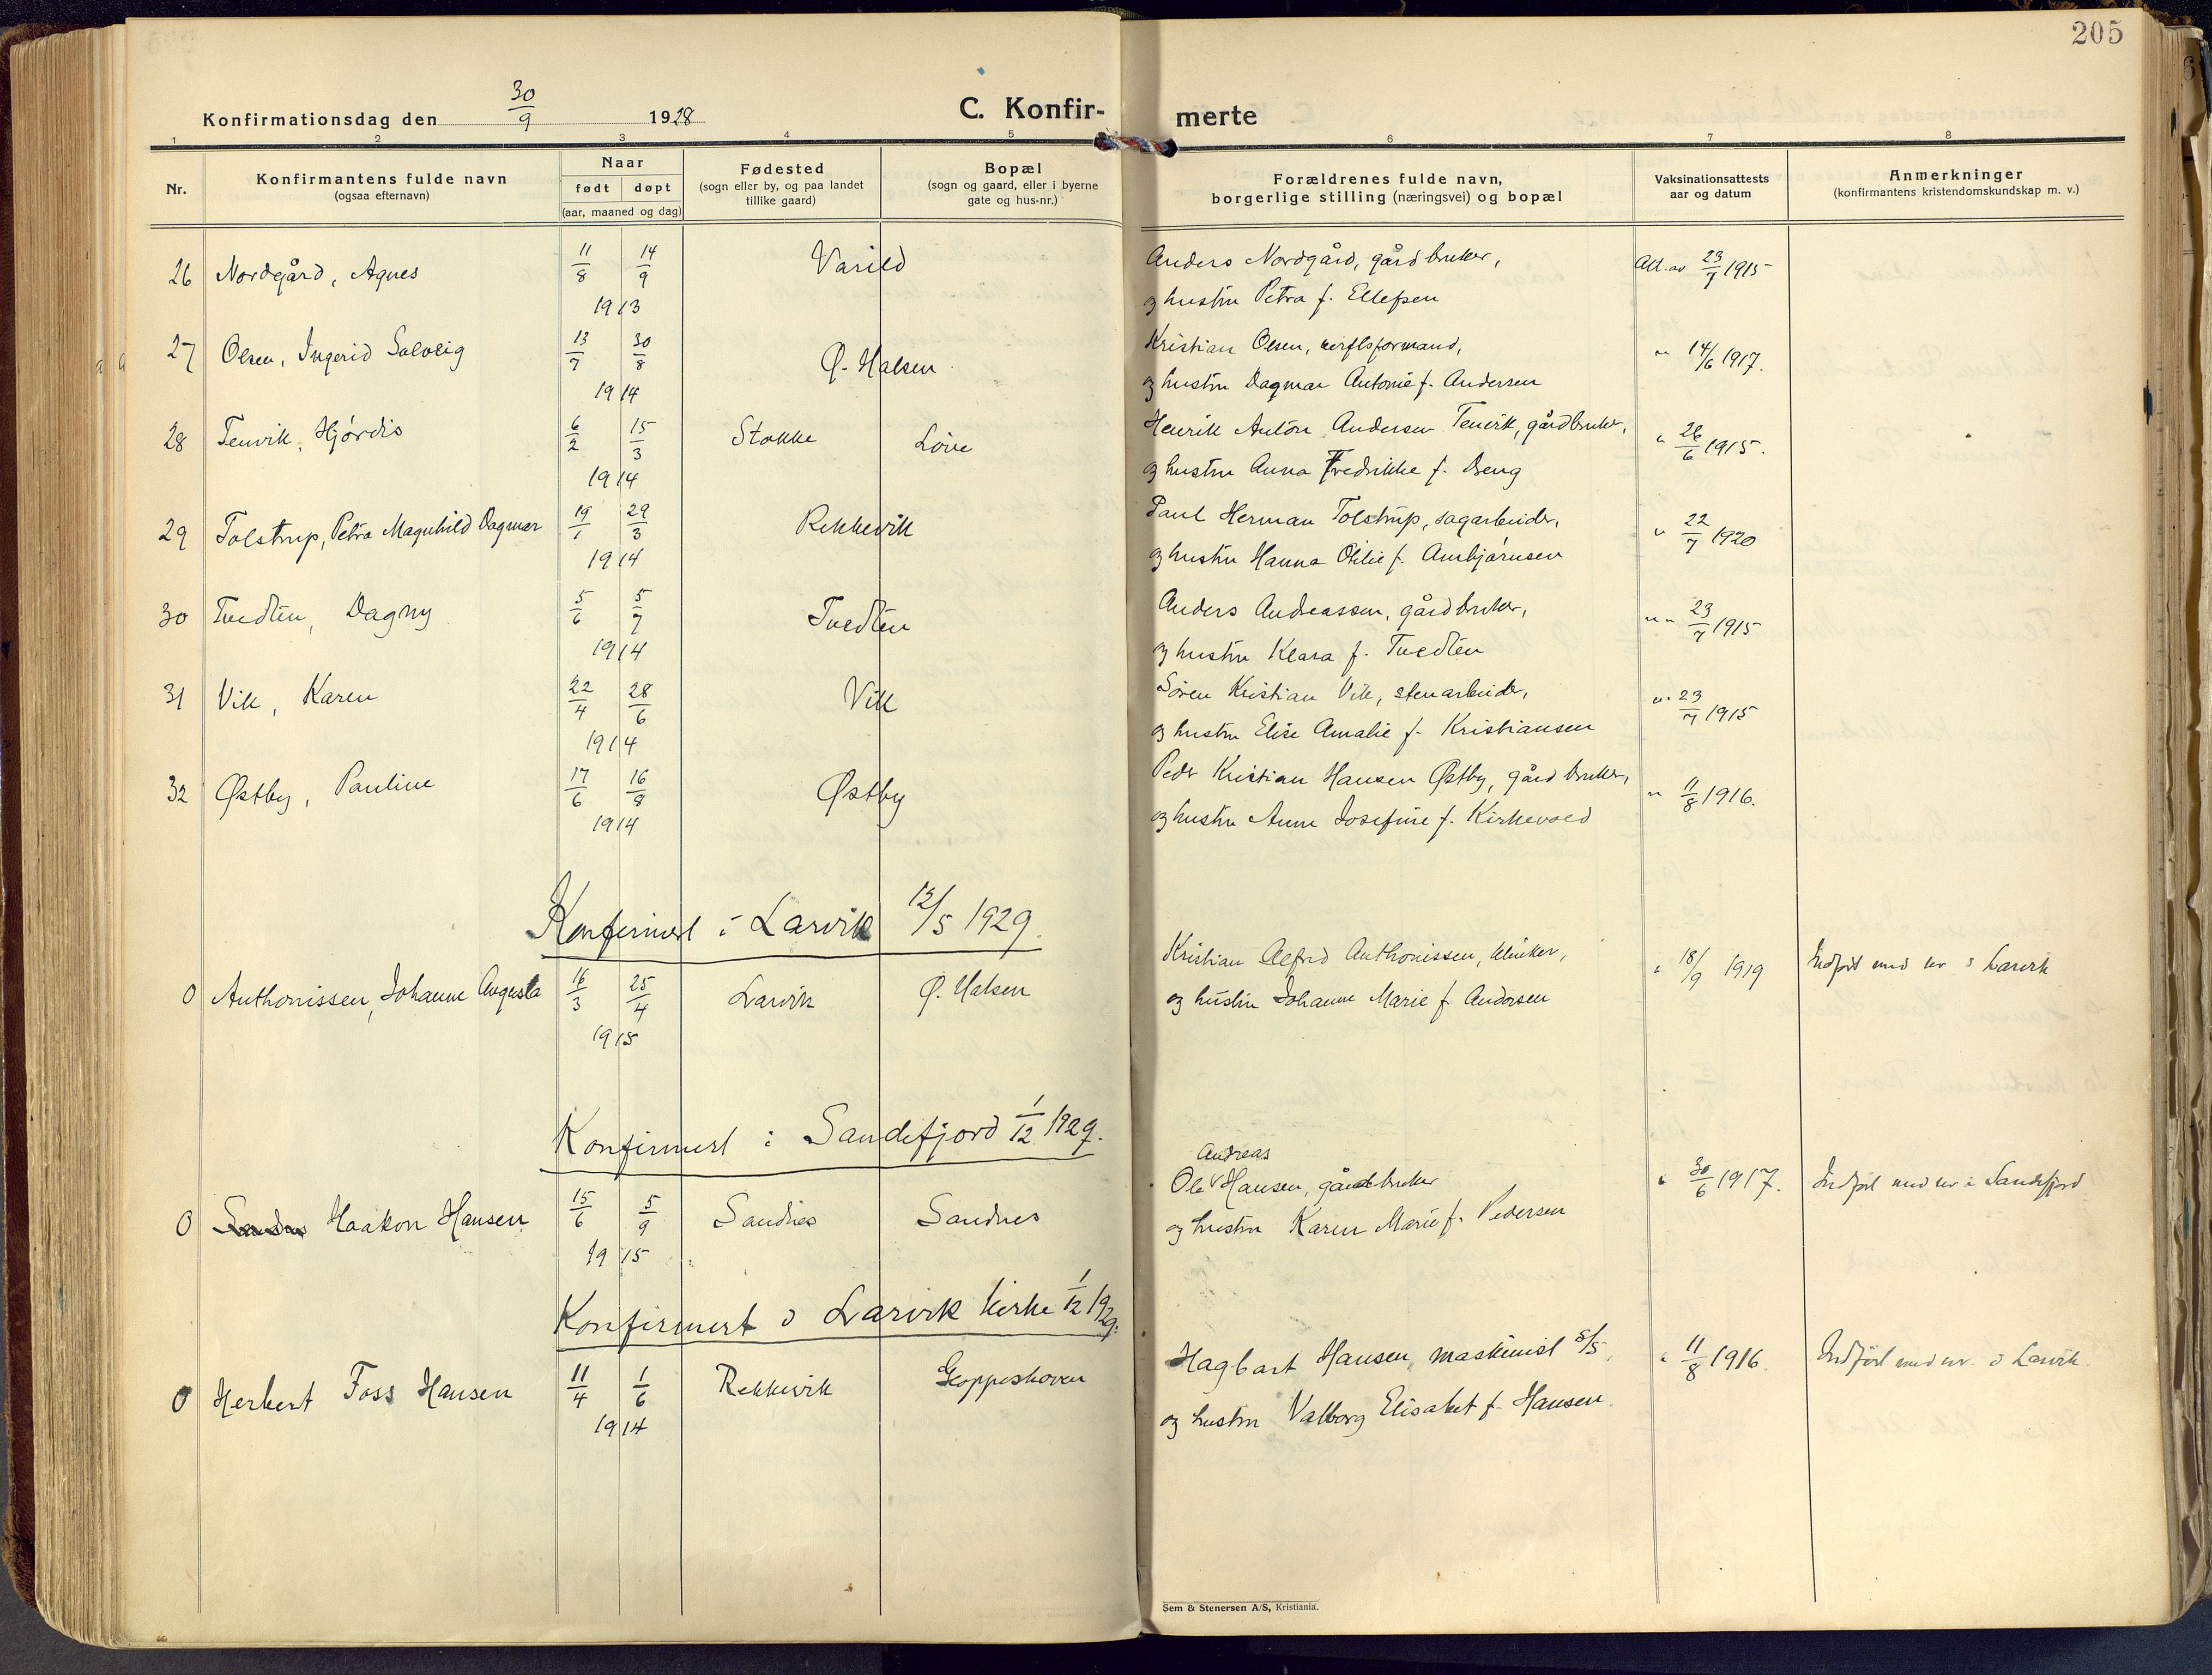 205
Konfirmationsdag den 30/9 1928
C. Konfir-
merte
1 2 3 4 5 6 7 8
Nr.
Konfirmantens fulde navn
(ogsaa efternavn)
Naar
født døpt
(aar, maaned og dag)
Fødested
(sogn eller by, og paa landet
tillike gaard)
Bopæl
(sogn og gaard, eller i byerne
gate og hus-nr.)
Forældrenes fulde navn,
borgerlige stilling (næringsvei) og bopæl
Vaksinationsattests
aar og datum
Anmerkninger
(konfirmantens kristendomskundskap m. v.)
26 Nordgård, Agnes 11/8 14/9 Varild Anders Nordgård, gårdbruker, Att. av 23/7 1915
1913 og hustru Petra f. Ellefsen
27 Olsen, Ingerid Solveig 13/7 30/8 Ø. Halsen Kristian Olsen, verftsformand, " 14/6 1917.
1914 og hustru Dagmar Antonie f. Andersen
28 Tenvik, Hjördis 6/2 15/3 Stokke Löve Henrik Anton Andersen Tenvik, gårdbruker, " 26/6 1915.
1914 og hustru Anna Fredrikke f. Beng
29 Tolstrup, Petra Magnhild Dagmar 19/1 29/3 Rekkevik Paul Herman Tolstrup, sagarbeider, " 22/7 1920
1914 og hustru Hanna Otilie f. Ambjörnsen
30 Tvedten, Dagny 5/6 5/7 Tvedten Anders Andreassen, gårdbruker, " " 23/7 1915
1914 og hustru Klara f. Tvedten
31 Vik, Karen 22/4 28/6 Vik Sören Kristian Vik, stenarbeider, " 23/7 1915
1914 og hustru Elise Amalie f. Kristiansen
32 Østby, Pauline 17/6 16/8 Østby Peder Kristian Hansen Østby, gårdbruker, " 11/8 1916.
1914 og hustru Anne Josefine f. Kirkevold
Konfirmert i Larvik 12/5 1929.
0 Anthonissen, Johanne Augusta 16/3 25/4 Larvik Ø. Halsen Kristian Alfred Anthonissen, klinker, " 18/9 1919 Indfört med nr i Larvik
1915 og hustru Johanne Marie f. Andersen
Konfirmert i Sandefjord 1/12 1929.
Andreas
0 Haakon Hansen 15/6 5/9 Sandnes Sandnes Ole Hansen, gårdbruker " 30/6 1917. Indfört med nr i Sandefjord
1915 og hustru Karen Marie f. Pedersen
Konfirmert i Larvik kirke 1/12 1929.
0 Herbert Foss Hansen 11/4 1/6 Rekkevik Gloppeskoven Hagbart Hansen, maskinist s/s, " 11/8 1916. Indfört med nr. i Larvik.
1914 og hustru Valborg Elisabet f. Hansen.
Sem & Stenersen A/S, Kristiania.